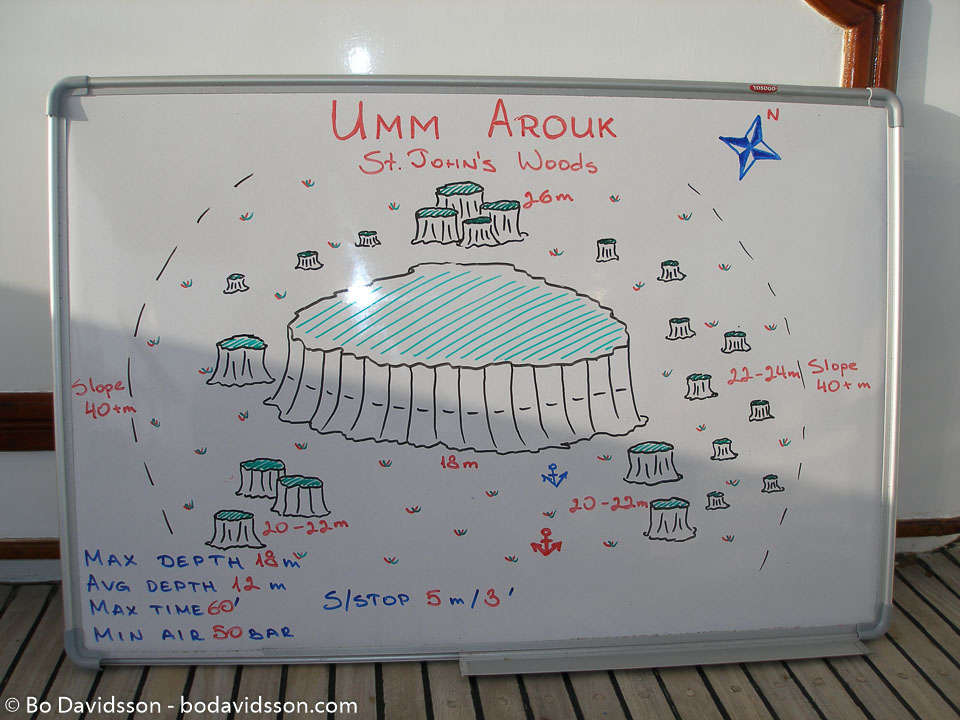 YOSOGO
N
UMM AROUK
St. John's Woods
26m
Slope
40+m
22-24m
Slope
40+m
18m
20-22m
20-22m
MAX DEPTH 18m
AVG DEPTH 12 m
MAX TIME 60'
MIN AIR 50 BAR
S/STOP 5m/3'
© Bo Davidsson - bodavidsson.com